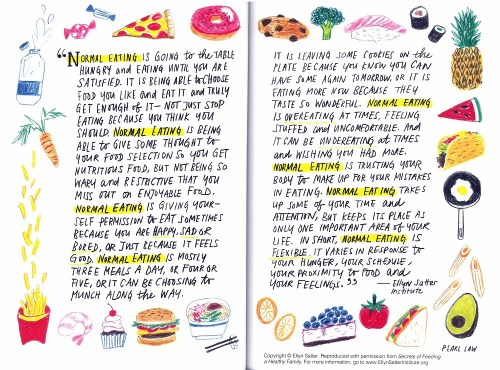 "NORMAL EATING IS GOING to the TABLE
HUNGRY and EATING UNTIL YOU ARE
SATISFIED. IT IS BEING ABLE to CHOOSE
FOOD YOU LIKE and EAT IT and TRULY
GET ENOUGH of IT – NOT JUST STOP
EATING BECAUSE YOU THINK YOU
SHOULD. NORMAL EATING IS BEING
ABLE to GIVE SOME THOUGHT to
YOUR FOOD SELECTION SO YOU GET
NUTRITIOUS FOOD, BUT NOT BEING SO
WARY and RESTRICTIVE THAT YOU
MISS OUT on ENJOYABLE FOOD.
NORMAL EATING IS GIVING YOUR-
SELF PERMISSION to EAT SOMETIMES
BECAUSE YOU ARE HAPPY, SAD OR
BORED, OR JUST BECAUSE IT FEELS
GOOD. NORMAL EATING IS MOSTLY
THREE MEALS A DAY, OR FOUR OR
FIVE, OR IT CAN BE CHOOSING to
MUNCH ALONG the WAY.
IT IS LEAVING SOME COOKIES on the
PLATE BECAUSE YOU KNOW YOU CAN
HAVE SOME AGAIN TOMORROW, OR IT IS
EATING MORE NOW BECAUSE THEY
TASTE SO WONDERFUL. NORMAL EATING
IS OVEREATING AT TIMES, FEELING
STUFFED and UNCOMFORTABLE. AND
IT CAN BE UNDEREATING at TIMES
and WISHING YOU HAD MORE.
NORMAL EATING IS TRUSTING YOUR
BODY to MAKE UP FOR YOUR MISTAKES
IN EATING. NORMAL EATING TAKES
UP SOME OF YOUR TIME and
ATTENTION, BUT KEEPS ITS PLACE AS
ONLY ONE IMPORTANT AREA OF YOUR
LIFE. IN SHORT, NORMAL EATING IS
FLEXIBLE. IT VARIES IN RESPONSE to
YOUR HUNGER, YOUR SCHEDULE,
YOUR PROXIMITY to FOOD and
YOUR FEELINGS."
— Ellyn Satter
Institute
PEARL LAW
Copyright © Ellyn Satter. Reproduced with permission from Secrets of Feeding
a Healthy Family. For more information, go to www.EllynSatterInstitute.org